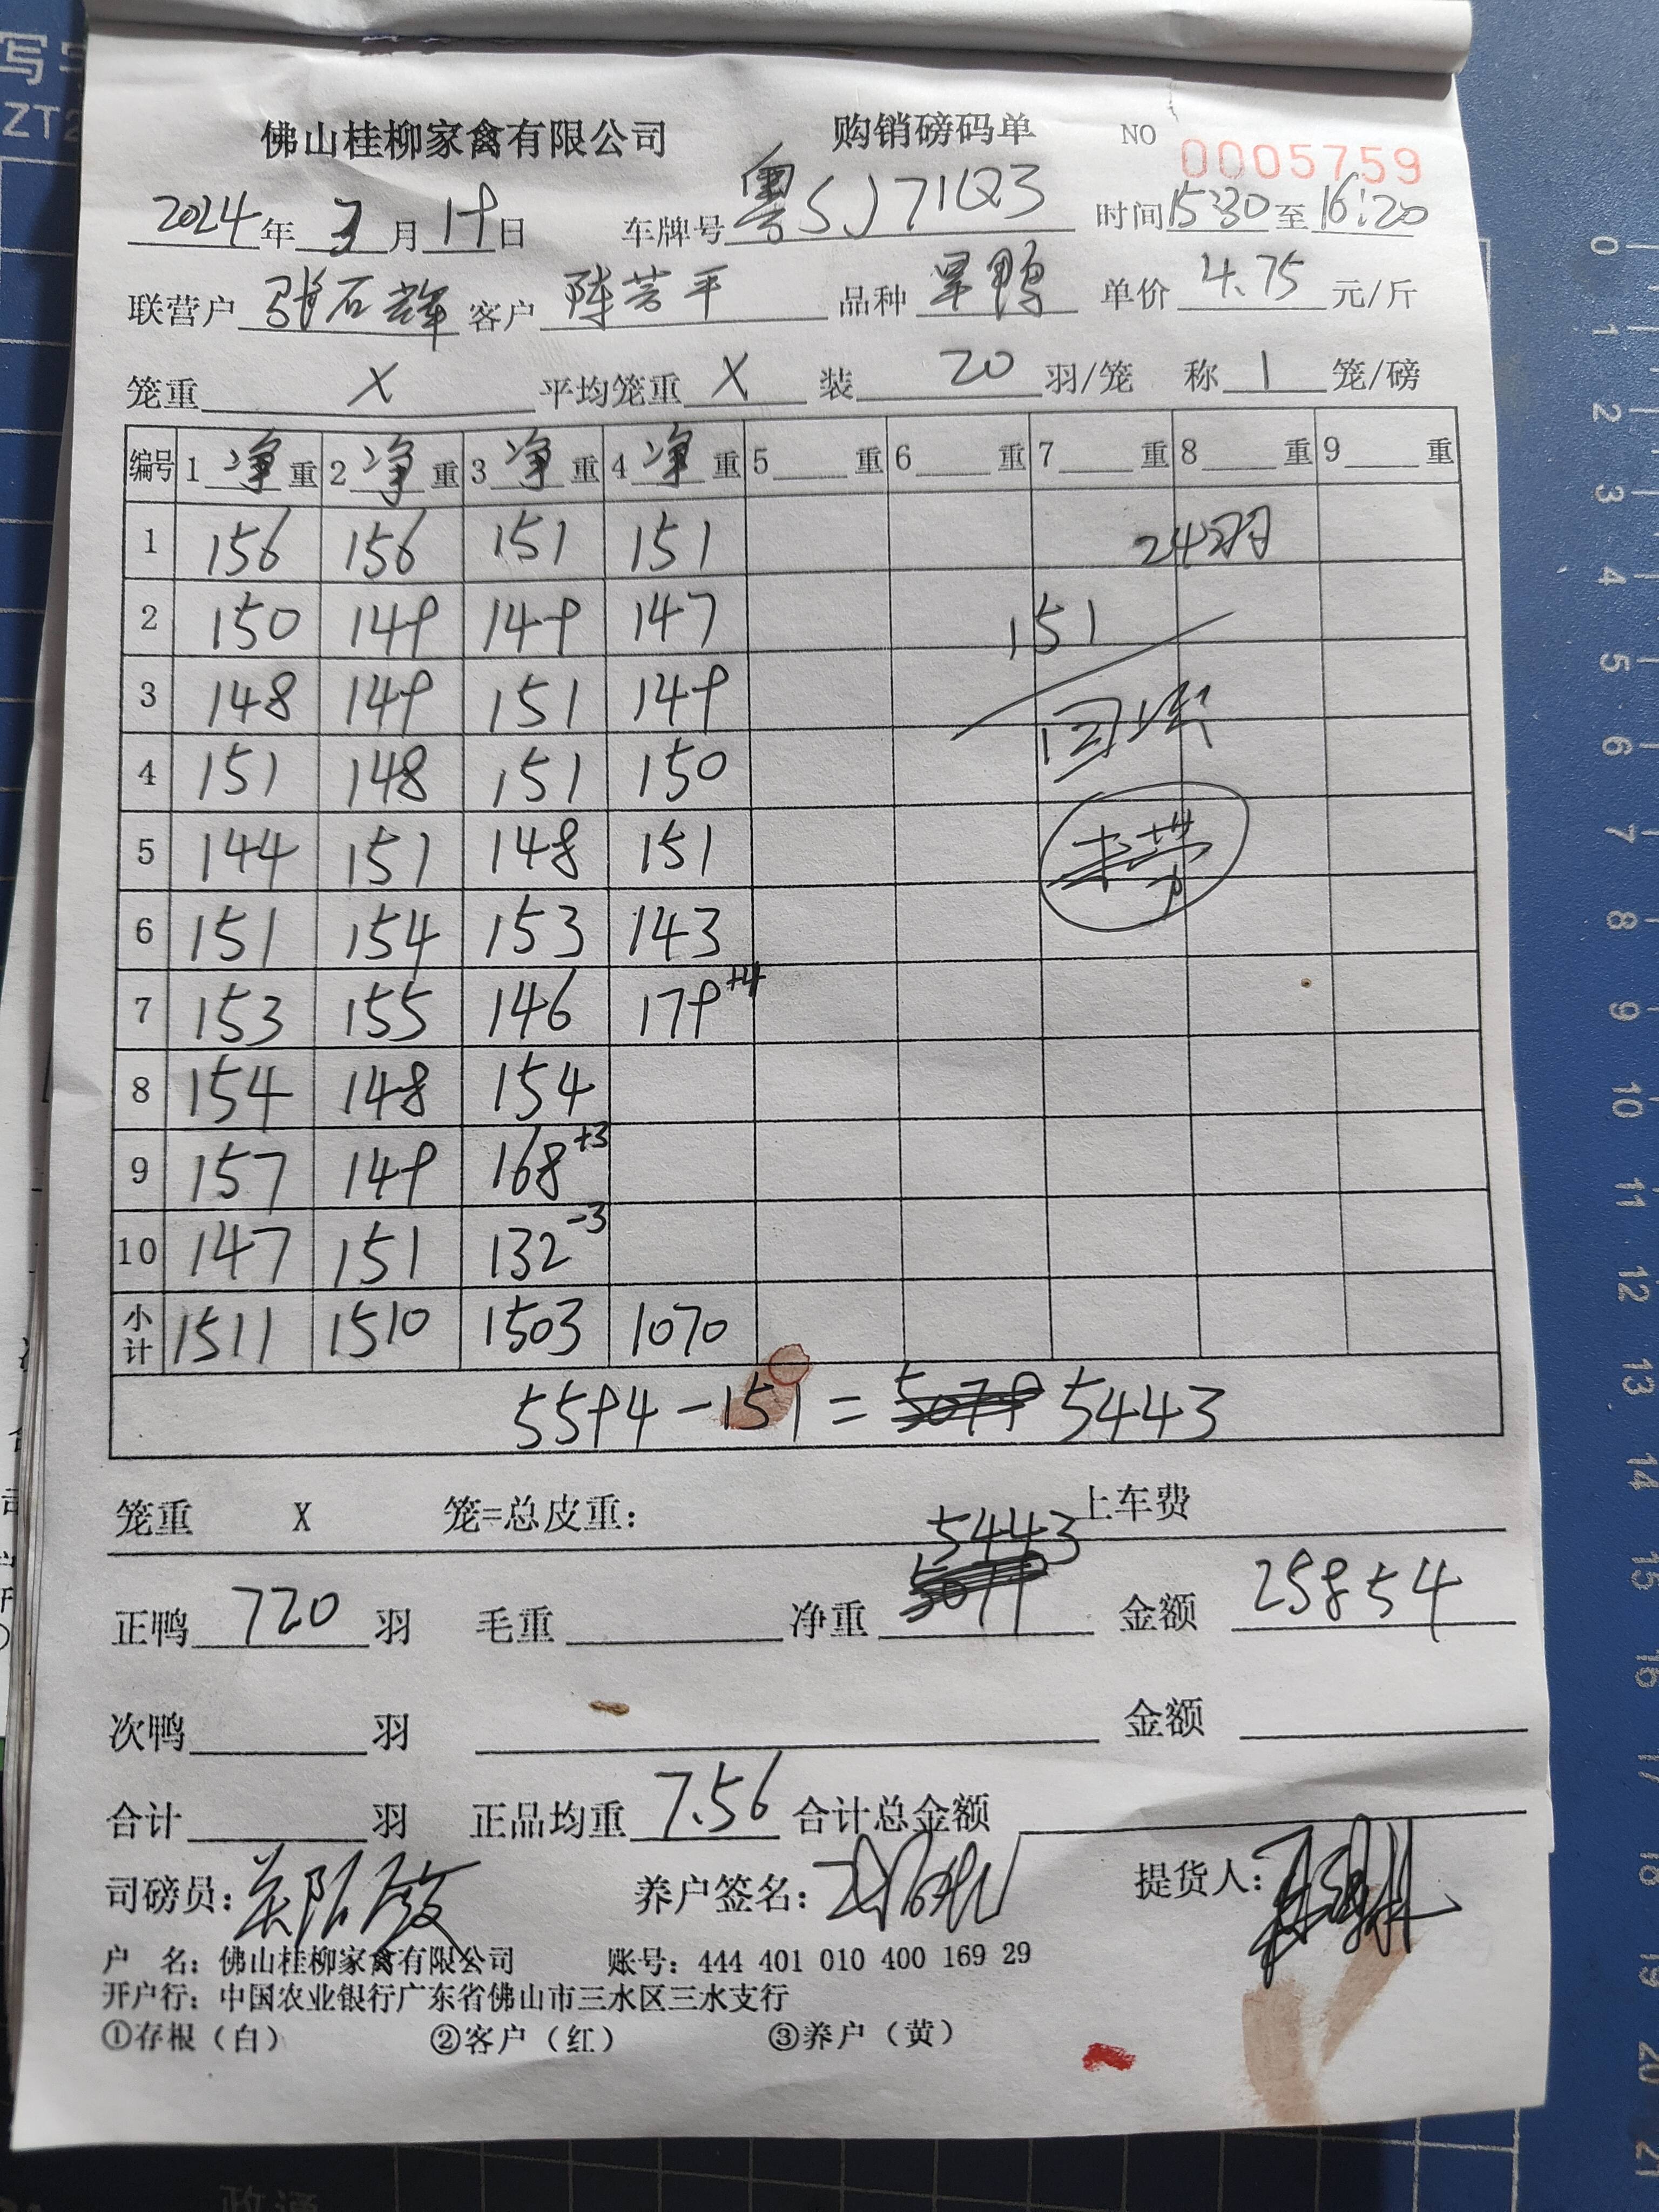 佛山桂柳家禽有限公司 购销磅码单 NO 0005759
2024年 3 月 19 日 车牌号 粤SJ71Q3 时间 15:30 至 16:20
联营户 张石辉 客户 陈芳平 品种 旱鸭 单价 4.75 元/斤
笼重 X 平均笼重 X 装 20 羽/笼 称 1 笼/磅
编号 1 净 重 2 净 重 3 净 重 4 净 重 5 重 6 重 7 重 8 重 9 重
1 156 156 151 151 24羽
2 150 149 149 147 151
3 148 149 151 149
4 151 148 151 150
5 144 151 148 151
6 151 154 153 143
7 153 155 146 179+4
8 154 148 154
9 157 149 168+3
10 147 151 132-3
小计 1511 1510 1503 1070
5594-151=5443
笼重 X 笼=总皮重: 上车费
正鸭 720 羽 毛重 净重 5443 金额 25854
次鸭 羽 金额
合计 羽 正品均重 7.56 合计总金额
司磅员: 养户签名: 提货人:
户 名: 佛山桂柳家禽有限公司 账号: 444 401 010 400 169 29
开户行: 中国农业银行广东省佛山市三水区三水支行
①存根（白） ②客户（红） ③养户（黄）
0
1
2
3
4
5
6
7
8
9
10
11
12
13
14
15
16
17
18
19
20
21